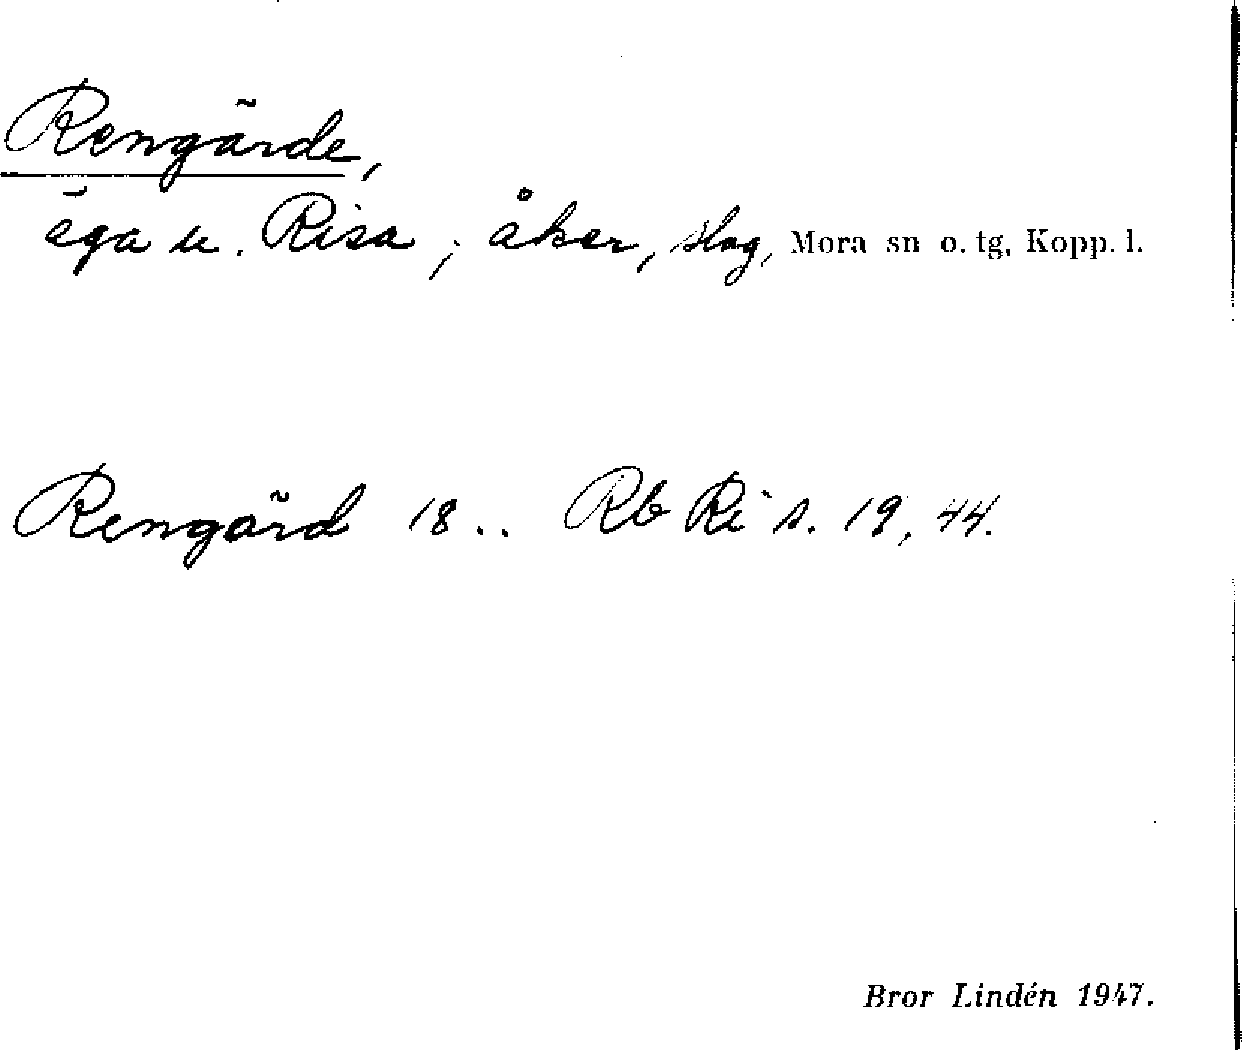 Rengärde,
äga u. Risa; åker, slog, Mora sn o. tg. Kopp. l.
Rengärd 18.. Rb Ri s. 19, 44.
Bror Lindén 1947.